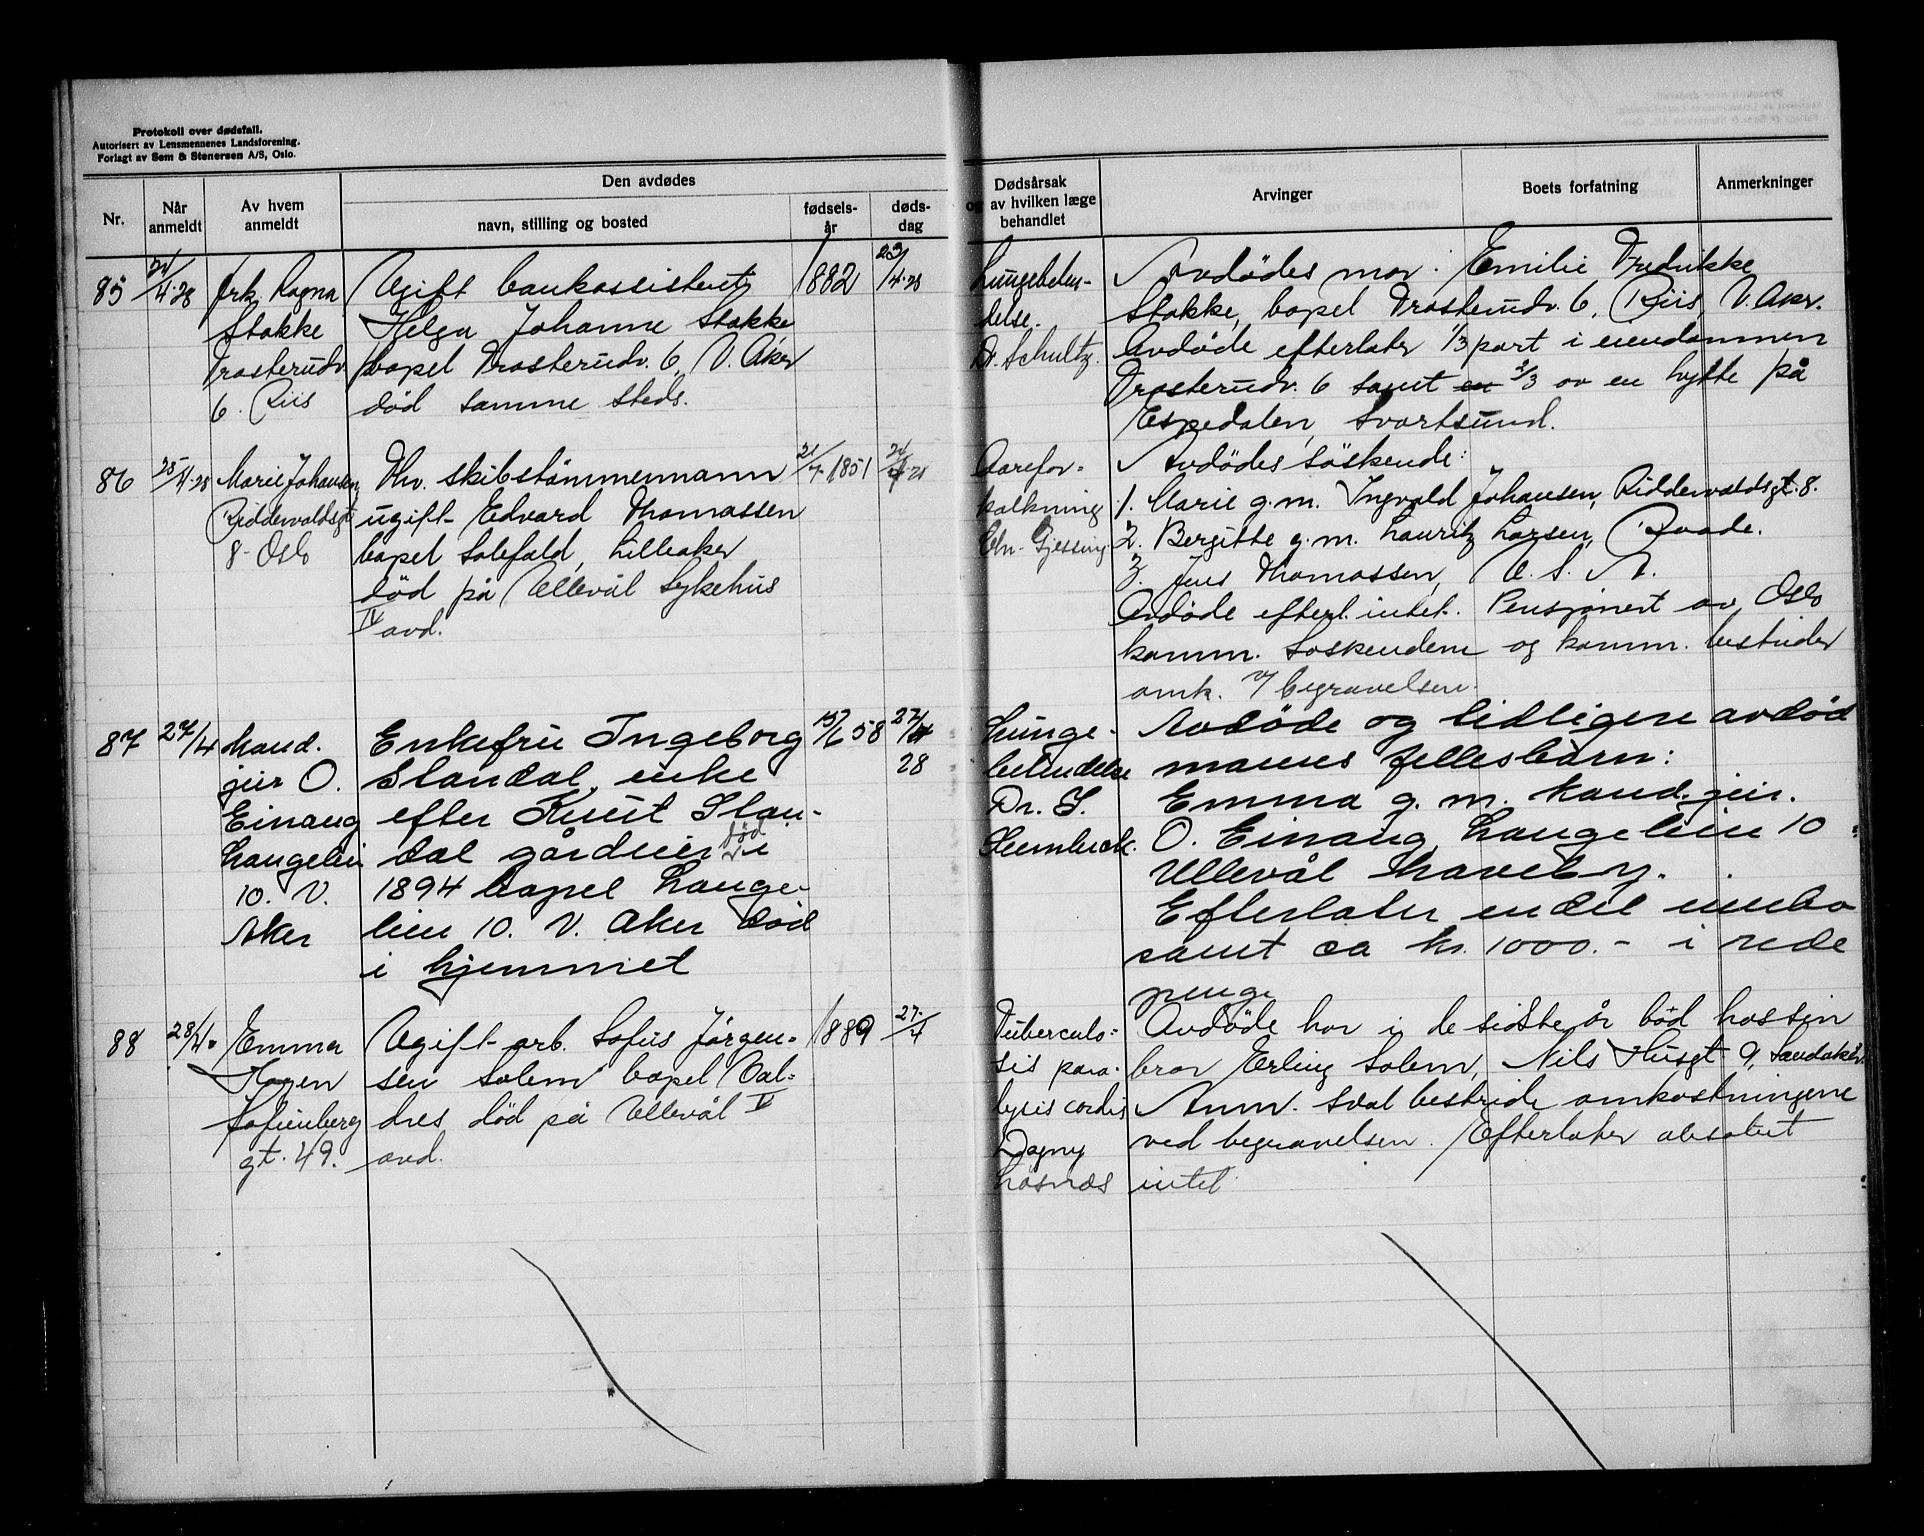 Protokoll over dødsfall.
Autorisert av Lensmennenes Landsforening.
Forlagt av Sem & Stenersen A/S, Oslo.
Nr.
Når
anmeldt
Av hvem
anmeldt
Den avdødes
navn, stilling og bosted
fødsels-
år
døds-
dag
Dødsårsak
og av hvilken læge
behandlet
Arvinger
Boets forfatning
Anmerkninger
85
24/4-28
frk. Ragna
Stokke
Drosterudv.
6. Riis
Ugift bankassistent
Helga Johanne Stokke
bopel Drosterudv. 6, V. Aker
død samme steds.
1882
23/4-28
Lungebeten-
delse.
Dr. Schultz.
Avdødes mor: Emilie Fredrikke
Stokke, bopel Drosterudv. 6, Riis, V. Aker.
Avdøde efterlater 1/3 part i eiendommen
Drosterudv. 6 samt en 2/3 av en hytte på
Espedalen, Svartsund.
86
25/4-28
Marie Johansen,
Riddervoldsgt
8 - Oslo
Fhv. skibstømmermann
ugift Edvard Thomassen
bopel Solefald, Lilleaker
død på Ullevål Sykehus
IV avd.
21/7-1851
24/4-28
Aarefor-
kalkning
Chr. Gjessing.
Avdødes søskende:
1. Marie g.m. Ingvald Johansen, Riddervoldsgt. 8.
2. Bergitte g.m. Lauritz Larsen, Raade.
3. Jens Thomassen, U. S. A.
Avdøde efterl. intet. Pensjonert av Oslo
komm. Søskendene og komm. bestrider
omk. v/ begravelsen.
87
27/4
kand.
jur O.
Einang
Langelii
10. V.
Aker
Enkefru Ingeborg
Slandal, enke
efter Knut Slan-
dal gårdeier død i
1894 bopel Lange-
lien 10. V. Aker død
i hjemmet
15/6 58
27/4
28
Lunge-
betendelse
Dr. S.
Avdøde og tidligere avdød
mannes fellesbarn:
Emma g. m. kand. jur.
O. Einang, Langelien 10
Ullevål Haveby.
Efterlater endel innbo
samt ca kr. 1000.- i rede
penge
88
28/4.
Emma
Hagen
Sofienberg
gt. 49.
Ugift arb. Sofus Jørgen-
sen Solem bopel Val-
dres død på Ullevål V
avd.
1889
27/4
Tuberculo-
sis para-
lysis cordis
Dagny
Løsnæs
Avdøde har i de siste år bød hos sin
bror Erling Solem, Nils Husgt 9, Sandaker.
Anm. skal bestride omkostningene
ved begravelsen. Efterlater absolut
intet.